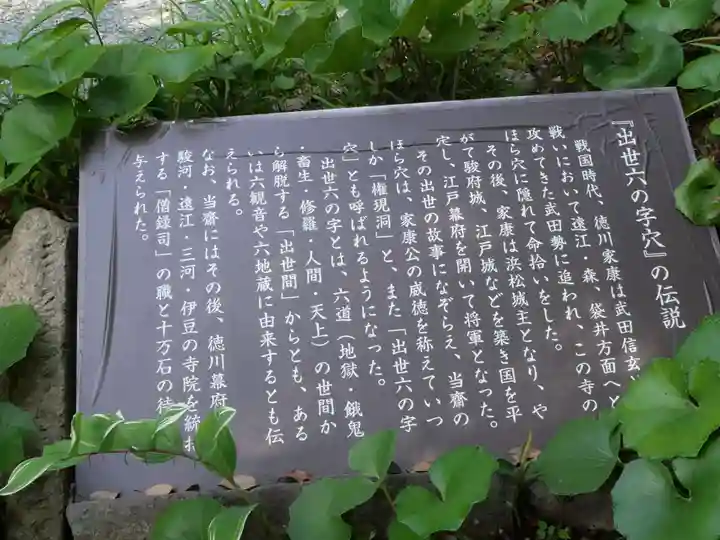 『出世六の字穴』の伝説
戦国時代、徳川家康は武田信玄
戦いにおいて遠江・森、袋井方面へと
攻めてきた武田勢に追われ、この寺の
ほら穴に隠れて命拾いをした。
その後、家康は浜松城主となり、や
がて駿府城、江戸城などを築き国を平
定し、江戸幕府を開いて将軍となった。
その出世の故事になぞらえ、当齋の
ほら穴は、家康公の威徳を称えていつ
しか「権現洞」と、また「出世六の字
穴」とも呼ばれるようになった。
出世六の字とは、六道(地獄・餓鬼
・畜生・修羅・人間・天上)の世間か
ら解脱する「出世間」からとも、ある
いは六観音や六地蔵に由来するとも伝
えられる。
なお、当齋にはその後、徳川幕府
駿河・遠江・三河・伊豆の寺院を統
する「僧録司」の職と十万石の待
与えられた。